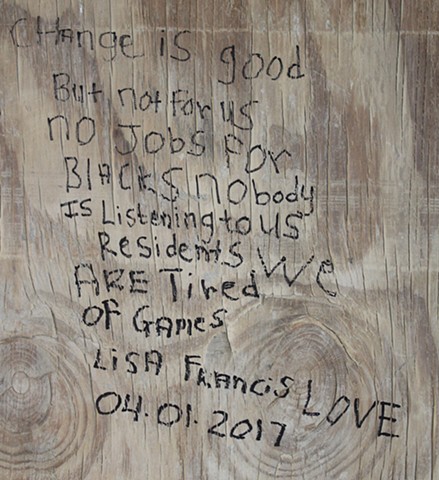 CHAnge is good
But not For us
no Jobs For
BlACks nobody
IS Listening to us
Residents We
ARE Tired
OF GAmes
LiSA FRAnciS LOVE
04.01.2017